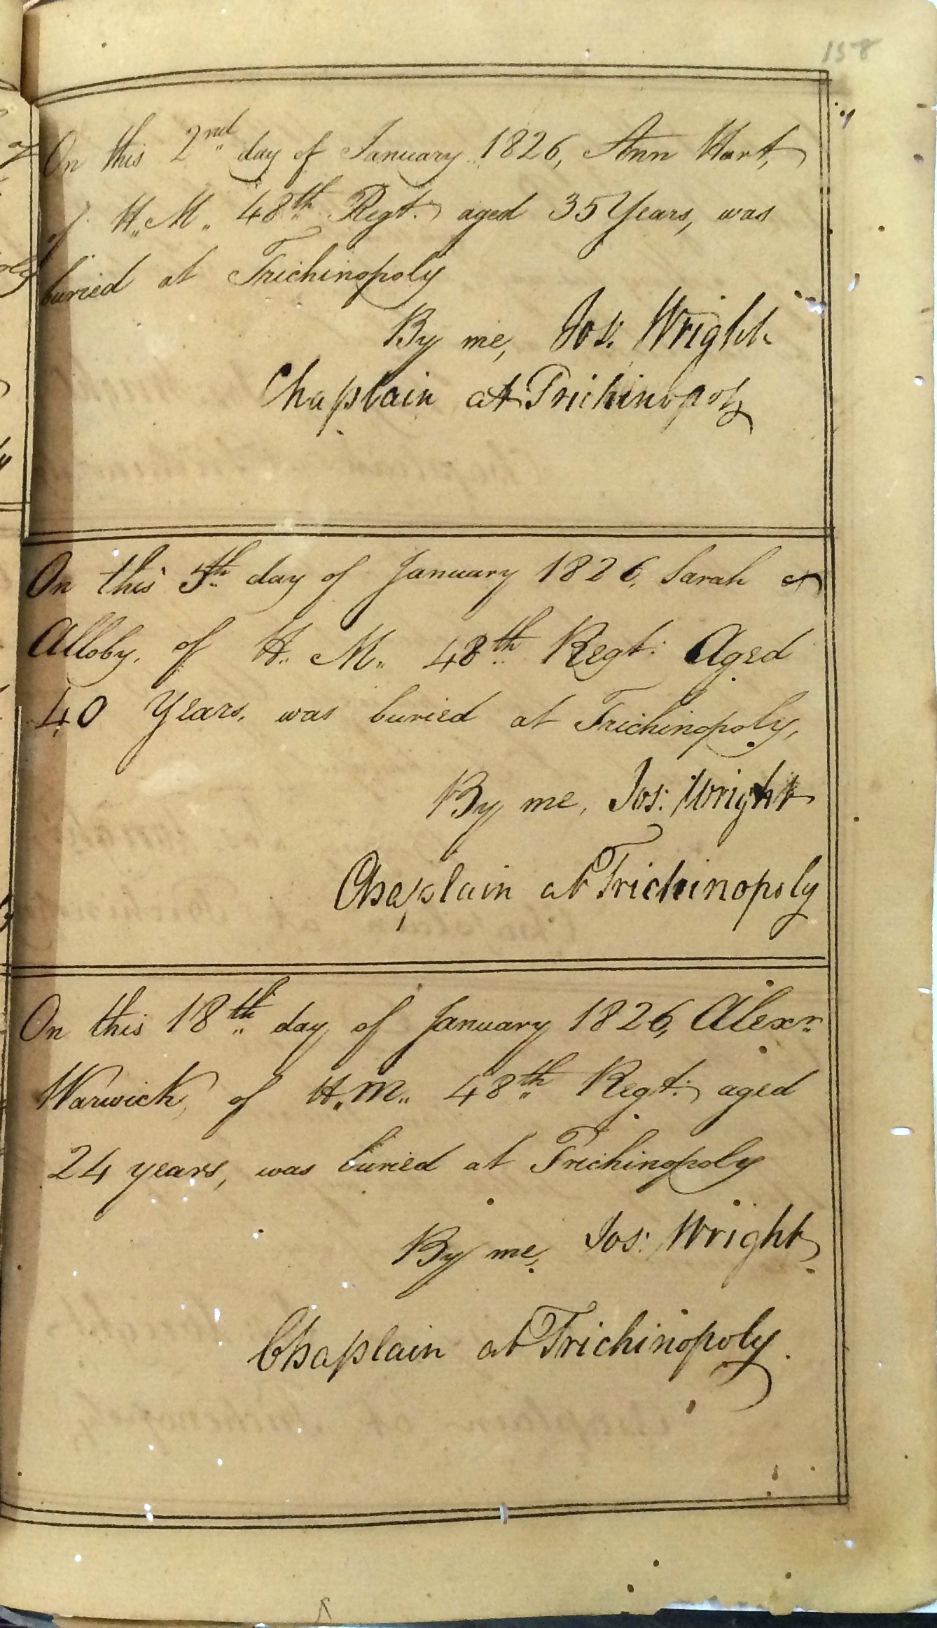 158
On this 2nd day of January 1826, Ann Hart,
of H.M. 48th Regt. aged 35 Years, was
buried at Trichinopoly
By me, Jos: Wright
Chaplain at Trichinopoly
On this 5th day of January 1826, Sarah
Alloby, of H. M. 48th Regt: Aged
40 Years, was buried at Trichinopoly,
By me, Jos: Wright
Chaplain at Trichinopoly
On this 18th day of January 1826, Alexr.
Warwick, of H.M. 48th Regt: aged
24 years, was buried at Trichinopoly
By me, Jos: Wright
Chaplain at Trichinopoly.